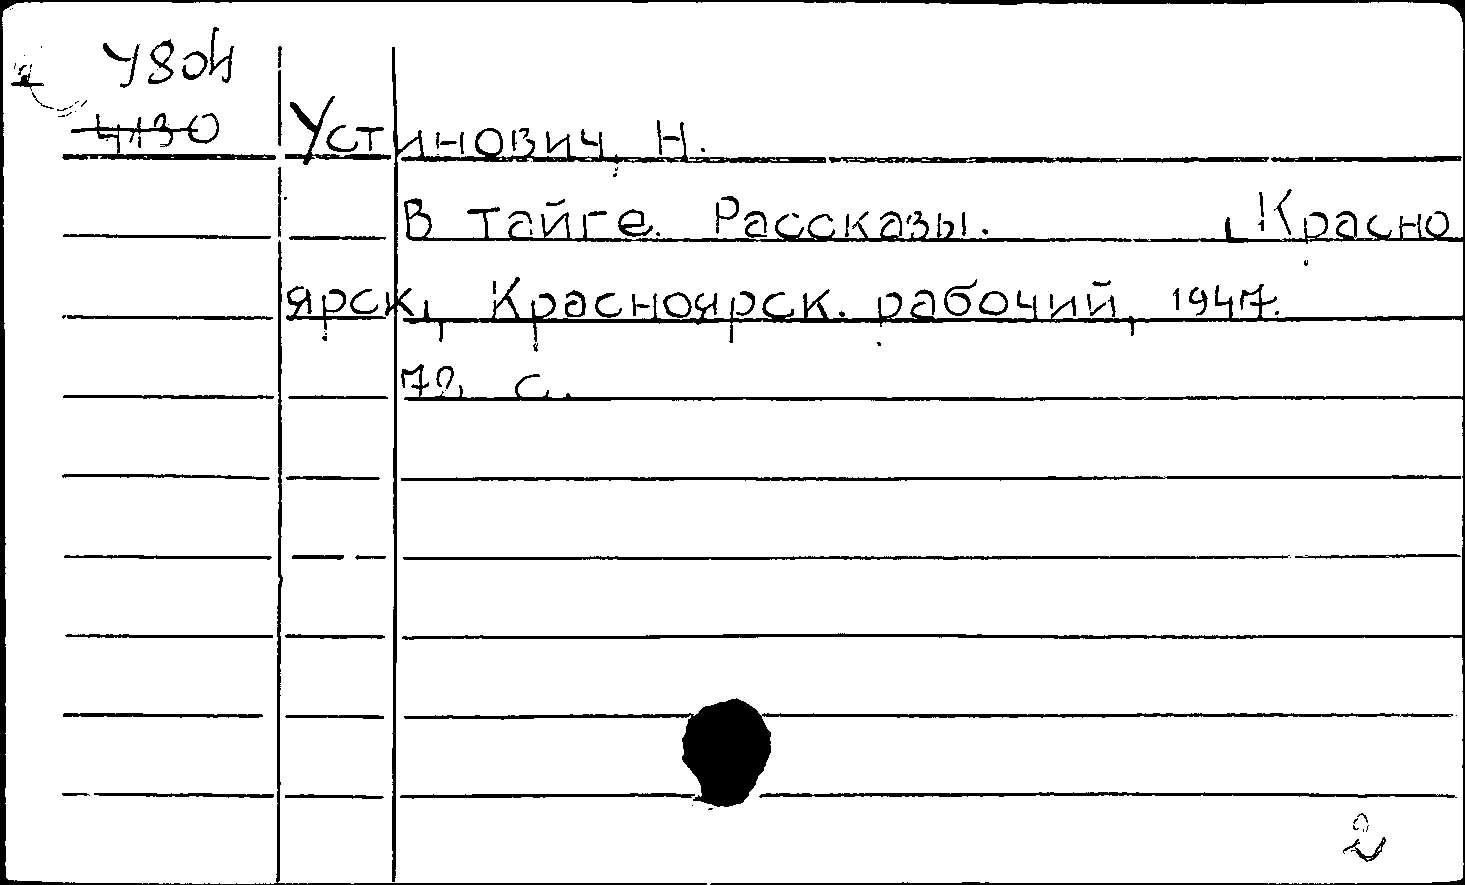 У804
4130
Устинович, Н.
В тайге. Рассказы. [Красно
ярск], Красноярск. рабочий, 1947.
72 с.
2